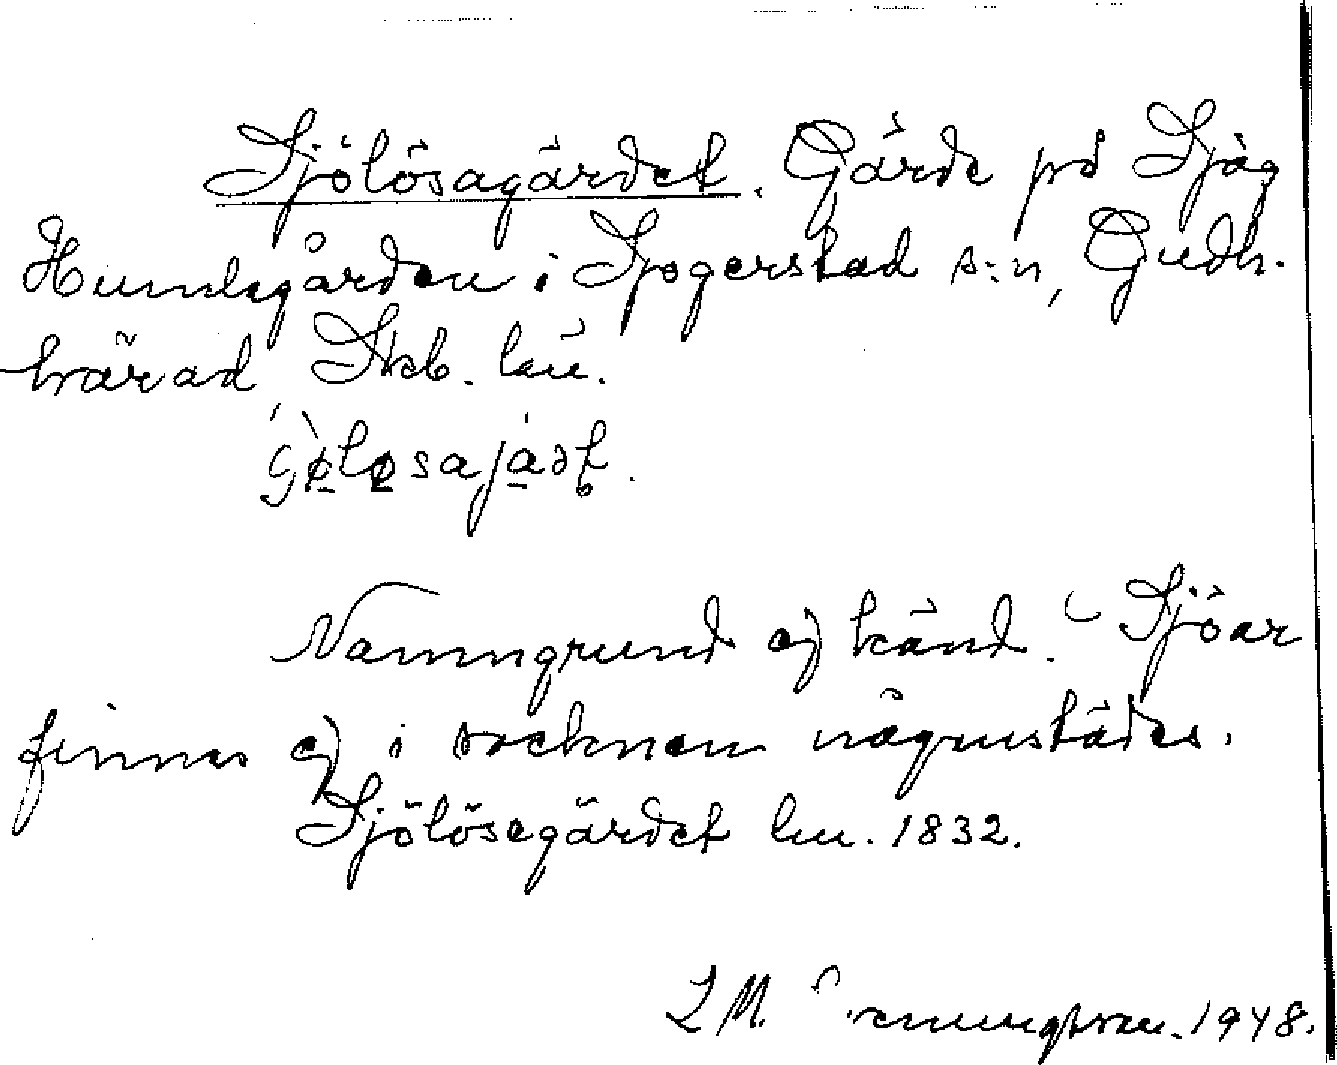 Sjölösagärdet. Gärde på Sjög
Humlegården i Sjogerstad s:n, Gudh.
härad, Skb. län.
Namngrund ej känd. Sjöar
finnes ej i socknen någrustädes.
Sjölösegärdet lm. 1832.
1948.